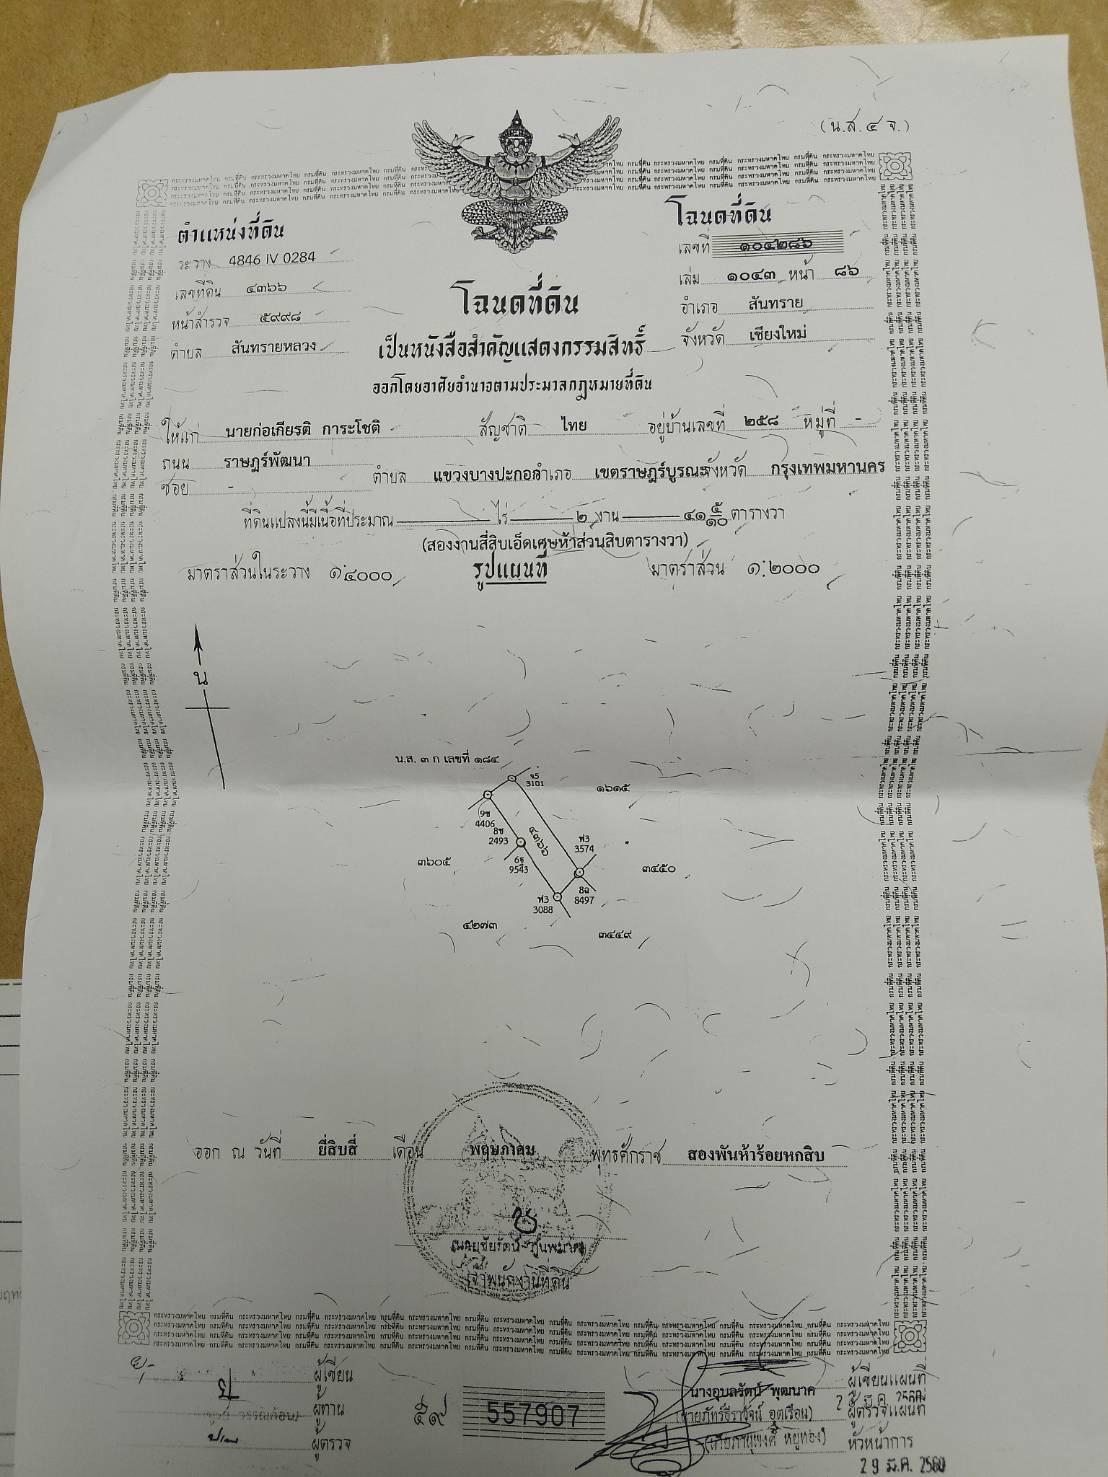 (น.ส.๔ จ.)
ตำแหน่งที่ดิน
ระวาง 4846 IV 0284
เลขที่ดิน ๔๓๖๖
หน้าสำรวจ ๕๙๙๘
ตำบล สันทรายหลวง
โฉนดที่ดิน
เลขที่ ๑๐๔๒๘๖
เล่ม ๑๐๔๓ หน้า ๘๖
อำเภอ สันทราย
จังหวัด เชียงใหม่
โฉนดที่ดิน
เป็นหนังสือสำคัญแสดงกรรมสิทธิ์
ออกโดยอาศัยอำนาจตามประมวลกฎหมายที่ดิน
ให้แก่ นายก่อเกียรติ การะโชติ สัญชาติ ไทย อยู่บ้านเลขที่ ๒๕๘ หมู่ที่ -
ถนน ราษฎร์พัฒนา
ซอย - ตำบล แขวงบางปะกอก อำเภอ เขตราษฎร์บูรณะ จังหวัด กรุงเทพมหานคร
ที่ดินแปลงนี้มีเนื้อที่ประมาณ ไร่ ๒ งาน ๔๑ ๕/๑๐ ตารางวา
(สองงานสี่สิบเอ็ดเศษห้าส่วนสิบตารางวา)
มาตราส่วนในระวาง ๑:๔๐๐๐ รูปแผนที่ มาตราส่วน ๑:๒๐๐๐
น
น.ส. ๓ ก เลขที่ ๑๘๔
จ5
3101
๑๖๑๕
9ช
4406
8ช
2493
๔๓๖๖
ฟ3
3574
๓๖๐๕
9543
๓๔๕๐
8ฉ
8497
ฟ3
3088
๔๒๗๓
๓๔๔๙
ออก ณ วันที่ ยี่สิบสี่ เดือน พฤษภาคม พุทธศักราช สองพันห้าร้อยหกสิบ
เจ้าพนักงานที่ดิน
ผู้เขียน
ผู้ทาน
ผู้ตรวจ
๕๙ 557907
นางอุบลรัตน์ พุฒนาค ผู้เขียนแผนที่
ผู้ตรวจแผนที่
หัวหน้าการ
29 มี.ค. 2560